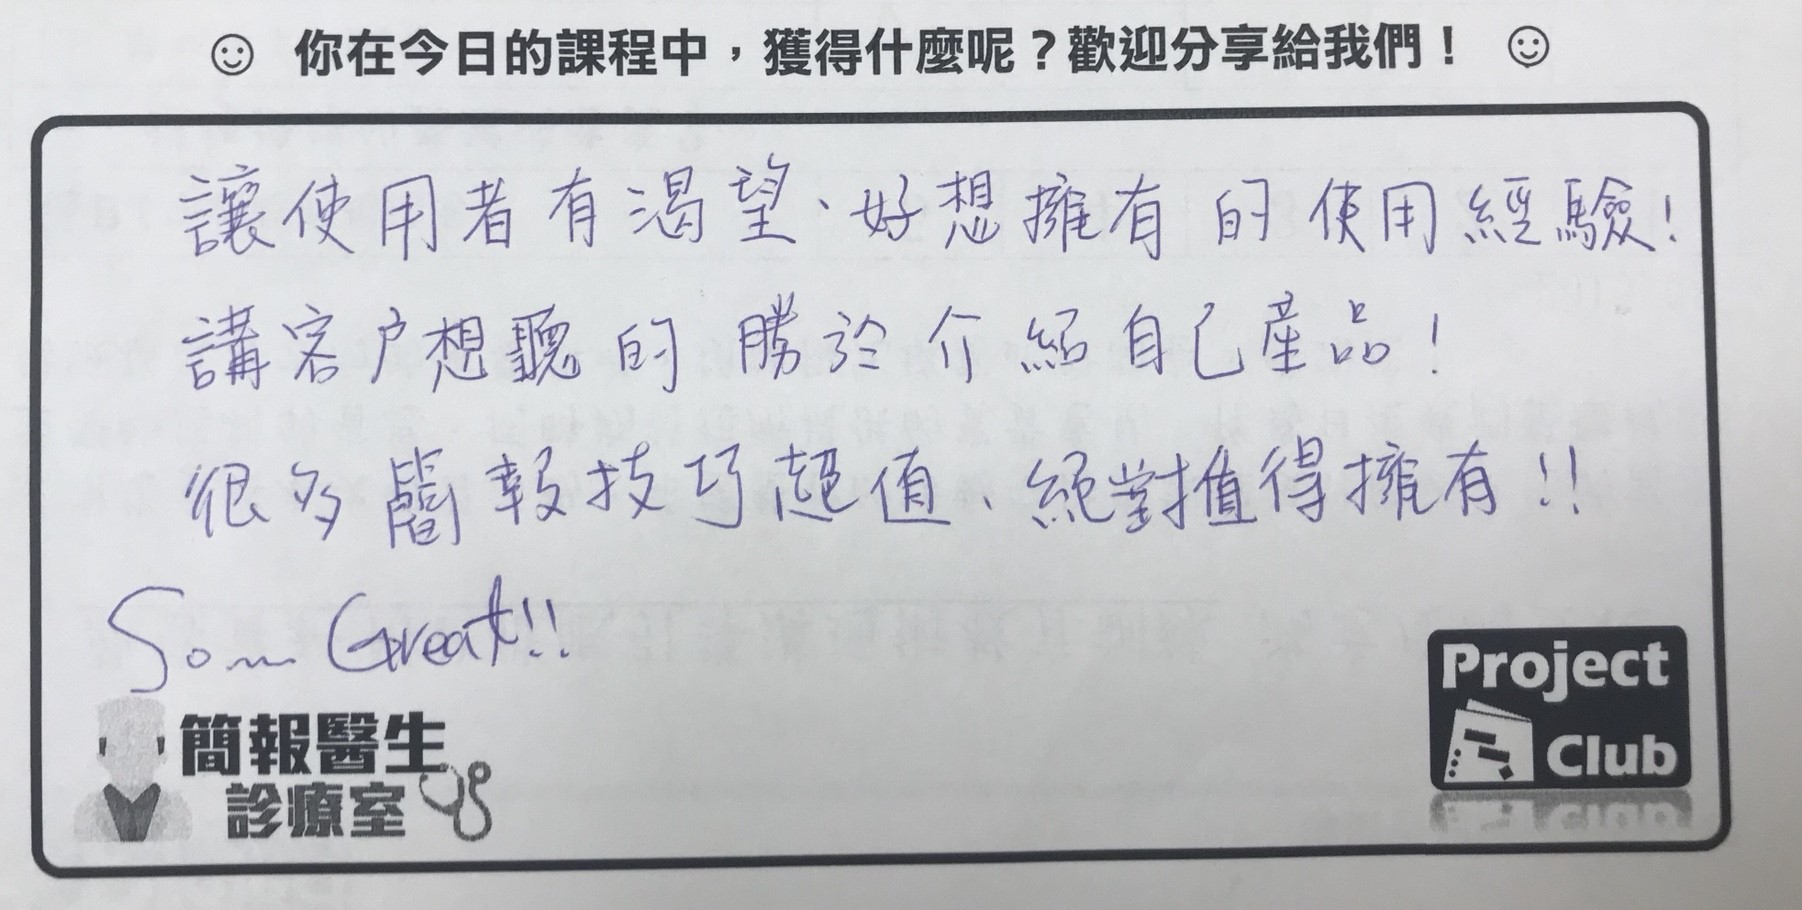 ☺ 你在今日的課程中，獲得什麼呢？歡迎分享給我們！ ☺
讓使用者有渴望、好想擁有的使用經驗!
講客戶想聽的勝於介紹自己產品!
很多簡報技巧超值、絕對值得擁有!!
So... Great!!
簡報醫生
診療室
Project
Club